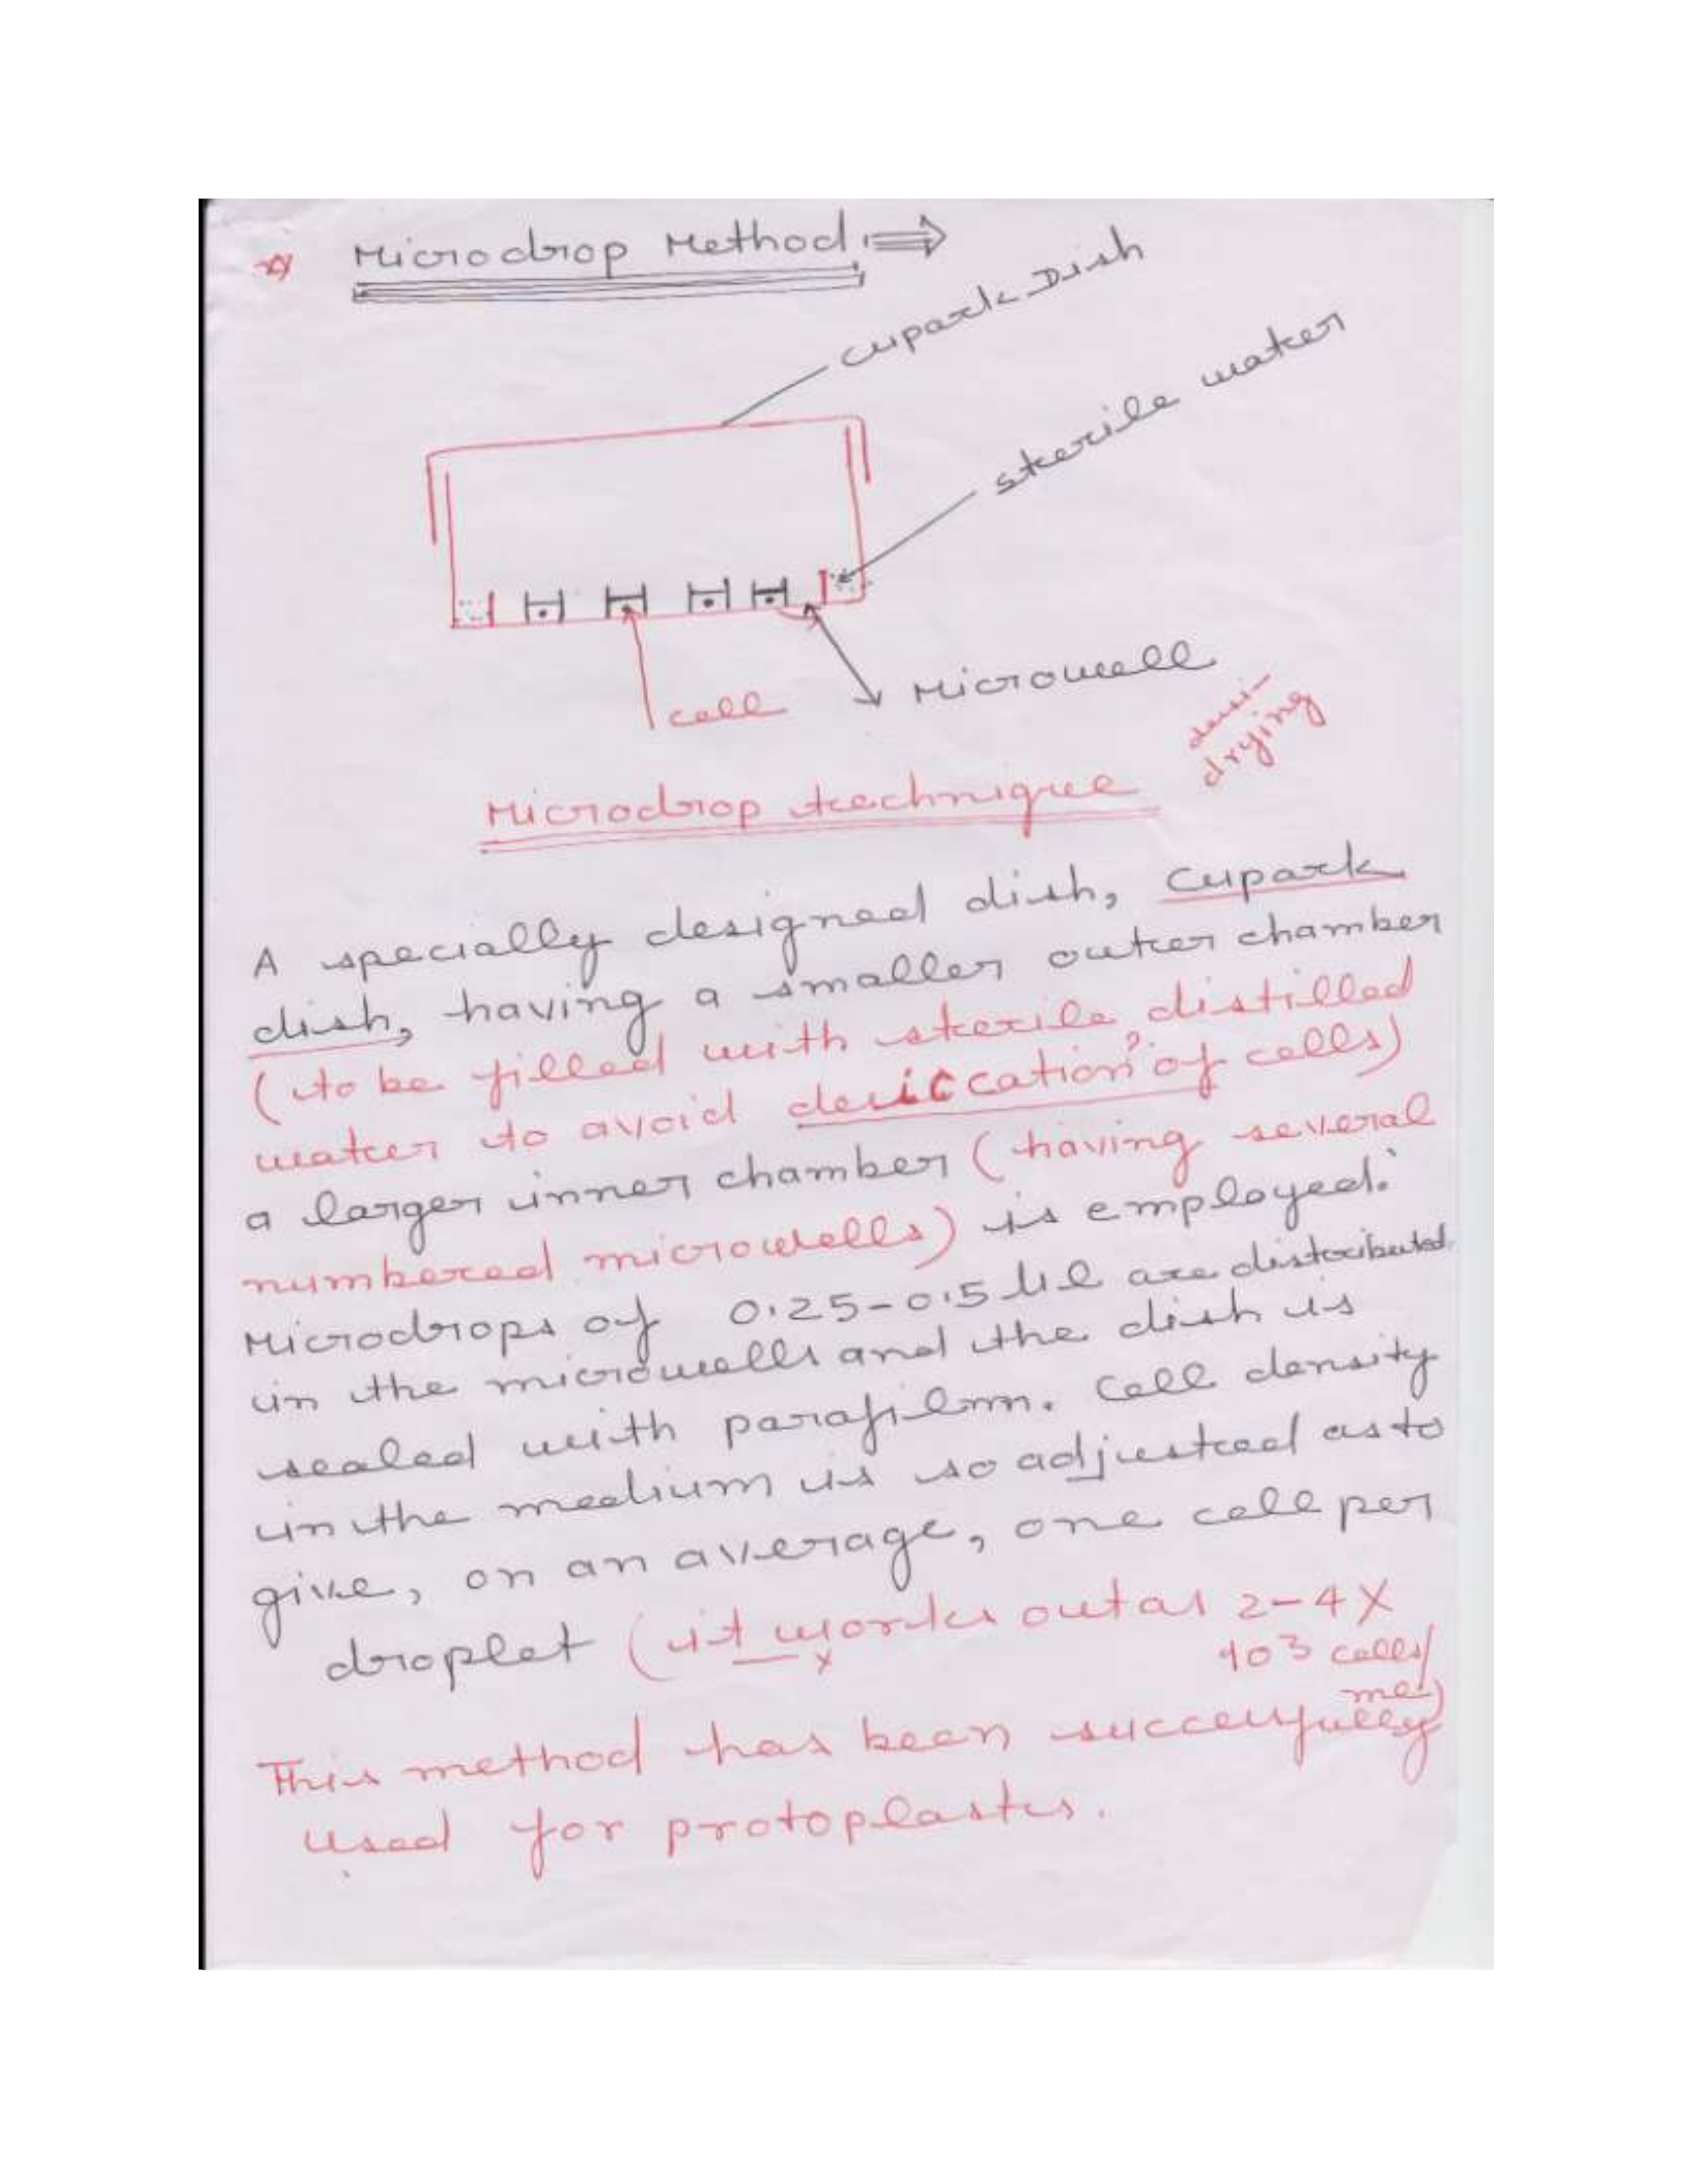 Microdrop Method
Cupark Dish
sterile water
cell
Microwell
desi-
drying
Microdrop technique
A specially designed dish, Cupark
dish, having a smaller outer chamber
(to be filled with sterile, distilled
water to avoid desiccation of cells)
a larger inner chamber (having several
numbered microwells) is employed.
Microdrops of 0.25-0.5 μl are distributed
in the microwells and the dish is
sealed with parafilm. Cell density
in the medium is so adjusted as to
give, on an average, one cell per
droplet (it works out as 2-4 X
103 cells/
ml)
This method has been successfully
used for protoplasts.